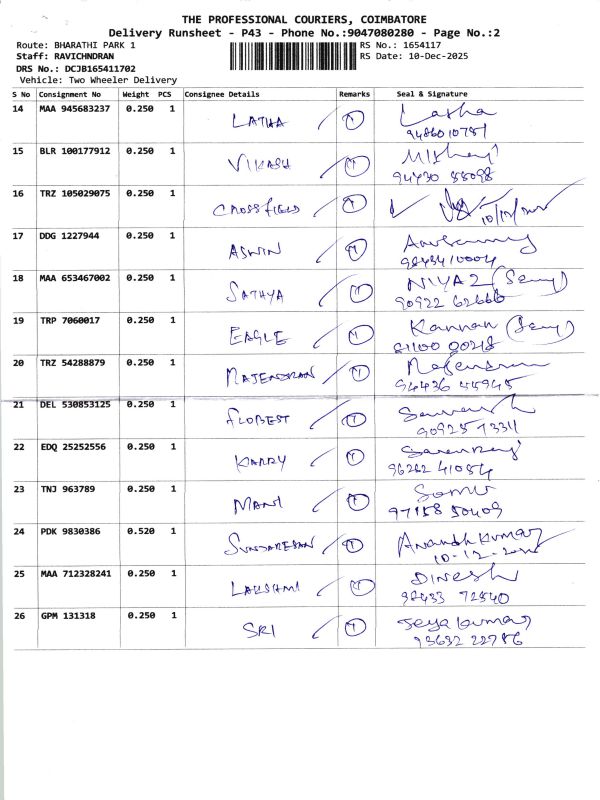 THE PROFESSIONAL COURIERS, COIMBATORE
Delivery Runsheet - P43 - Phone No.:9047080280 - Page No.:2
Route: BHARATHI PARK 1 RS No.: 1654117
Staff: RAVICHNDRAN RS Date: 10-Dec-2025
DRS No.: DCJB165411702
Vehicle: Two Wheeler Delivery
S No Consignment No Weight PCS Consignee Details Remarks Seal & Signature
14 MAA 945683237 0.250 1 LATHA Latha
9486010781
15 BLR 100177912 0.250 1 VIKASH
94430 58098
16 TRZ 105029075 0.250 1 CROSSFIELD
17 DDG 1227944 0.250 1 ASWIN
98434 10004
18 MAA 653467002 0.250 1 SATHYA NIYAZ
90922 62666
19 TRP 7060017 0.250 1 EAGLE Kannan
81100 00218
20 TRZ 54288879 0.250 1 RAJENDRAN Rajendran
94436 55945
21 DEL 530853125 0.250 1 FLOBEST
22 EDQ 25252556 0.250 1 KARRY
96262 41084
23 TNJ 963789 0.250 1 MANI
97158 50409
24 PDK 9830386 0.520 1 SUNDARESAN Anandh Kumar
25 MAA 712328241 0.250 1 LAKSHMI DINESH
98433 72840
26 GPM 131318 0.250 1 SRI Jeyakumar
93632 22786